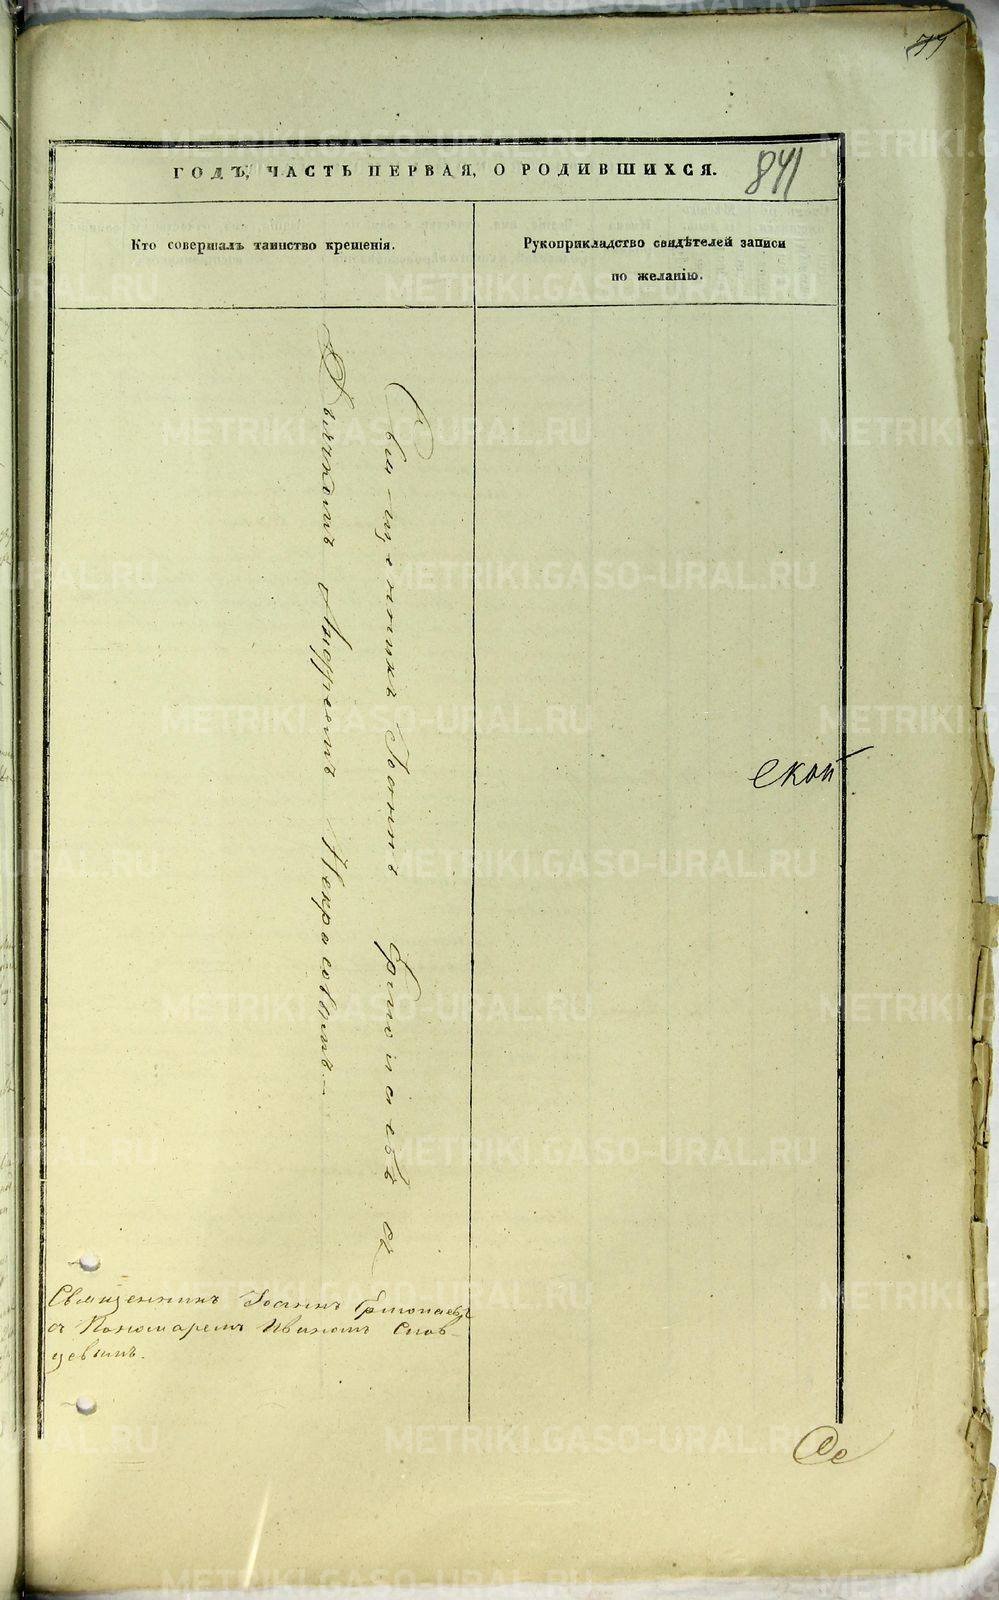 ГОДЪ, ЧАСТЬ ПЕРВАЯ, О РОДИВШИХСЯ.
841
Кто совершалъ таинство крещенія.
Рукоприкладство свидѣтелей записи
по желанію.
Священникъ Іоаннъ съ
Дьячкомъ Андреемъ Некрасовымъ
ской
Священникъ Іоаннъ
съ Пономаремъ Иваномъ Слов-
цевымъ.
METRIKI.GASO-URAL.RU